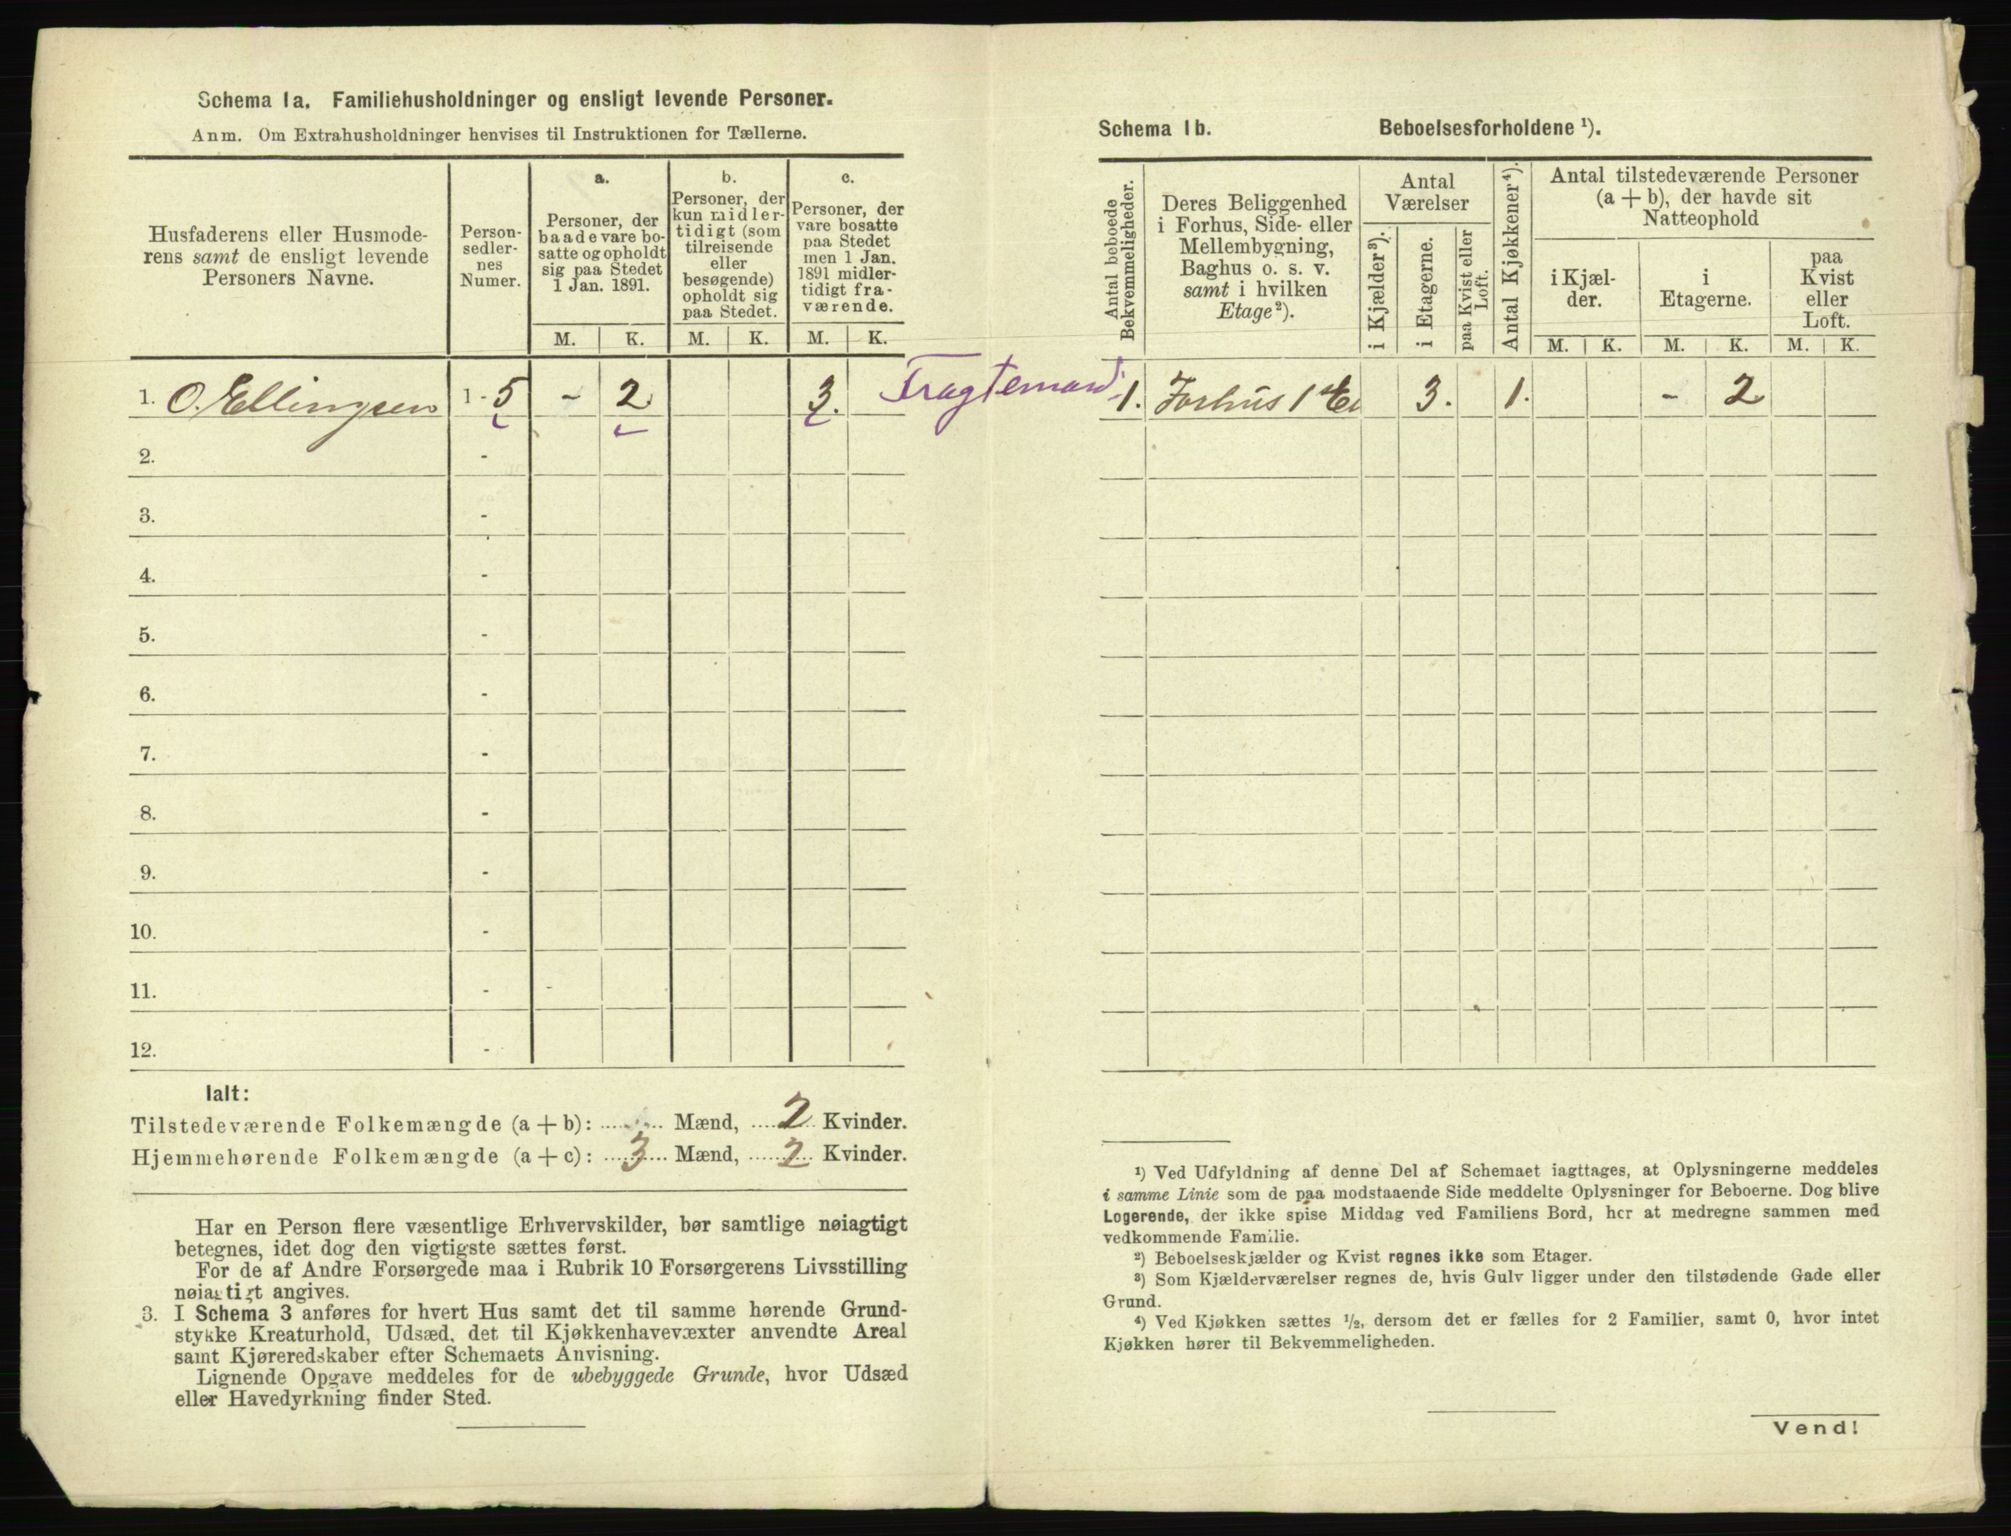 Schema 1a. Familiehusholdninger og ensligt levende Personer.
Anm. Om Extrahusholdninger henvises til Instruktionen for Tællerne.
Husfaderens eller Husmode-
rens samt de ensligt levende
Personers Navne.
Person-
sedler-
nes
Numer.
a.
Personer, der
baade vare bo-
satte og opholdt
sig paa Stedet
1 Jan. 1891.
b.
Personer, der
kun midler-
tidigt (som
tilreisende
eller
besøgende)
opholdt sig
paa Stedet.
c.
Personer, der
vare bosatte
paa Stedet
men 1 Jan.
1891 midler-
tidigt fra-
værende.
M. K. M. K. M. K.
1. O. Ellingsen 1 - 5 - 2 3. Fragtemand
2. -
3. -
4. -
5. -
6. -
7. -
8. -
9. -
10. -
11. -
12. -
Ialt:
Tilstedeværende Folkemængde (a + b): ........ Mænd, ..... 2 Kvinder.
Hjemmehørende Folkemængde (a + c): ..... 3 ..... Mænd, ..... 2 ..... Kvinder.
Har en Person flere væsentlige Erhvervskilder, bør samtlige nøiagtigt
betegnes, idet dog den vigtigste sættes først.
For de af Andre Forsørgede maa i Rubrik 10 Forsørgerens Livsstilling
nøiagtigt angives.
3. I Schema 3 anføres for hvert Hus samt det til samme hørende Grund-
stykke Kreaturhold, Udsæd, det til Kjøkkenhavevæxter anvendte Areal
samt Kjøreredskaber efter Schemaets Anvisning.
Lignende Opgave meddeles for de ubebyggede Grunde, hvor Udsæd
eller Havedyrkning finder Sted.
Schema 1b. Beboelsesforholdene ¹).
Antal beboede
Bekvemmeligheder.
Deres Beliggenhed
i Forhus, Side- eller
Mellembygning,
Baghus o. s. v.
samt i hvilken
Etage²).
Antal
Værelser
i Kjælder³).
i Etagerne.
paa Kvist eller
Loft.
Antal Kjøkkener⁴).
Antal tilstedeværende Personer
(a + b), der havde sit
Natteophold
i Kjæl-
der.
i
Etagerne.
paa
Kvist
eller
Loft.
M. K. M. K. M. K.
1. Forhus 1 Et 3. 1. - 2
¹) Ved Udfyldning af denne Del af Schemaet iagttages, at Oplysningerne meddeles
i samme Linie som de paa modstaaende Side meddelte Oplysninger for Beboerne. Dog blive
Logerende, der ikke spise Middag ved Familiens Bord, her at medregne sammen med
vedkommende Familie.
²) Beboelseskjælder og Kvist regnes ikke som Etager.
³) Som Kjælderværelser regnes de, hvis Gulv ligger under den tilstødende Gade eller
Grund.
⁴) Ved Kjøkken sættes ½, dersom det er fælles for 2 Familier, samt 0, hvor intet
Kjøkken hører til Bekvemmeligheden.
Vend!